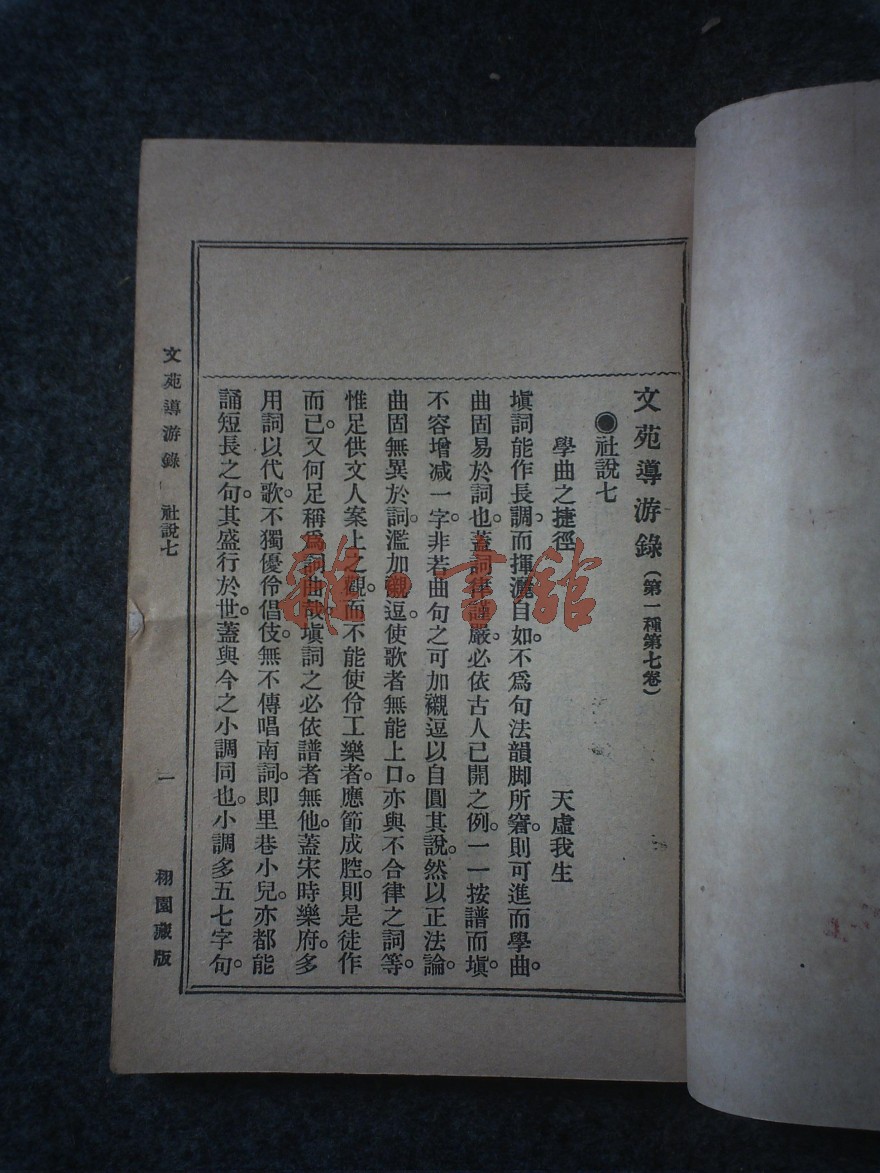 文苑導游錄(第一種第七卷)
●社說七
學曲之捷徑 天虛我生
塡詞能作長調而揮灑自如。不爲句法韻脚所窘。則可進而學曲。
曲固易於詞也。蓋詞律謹嚴。必依古人已開之例。一一按譜而塡。
不容增减一字。非若曲句之可加襯逗以自圓其說。然以正法論。
曲固無異於詞。濫加襯逗。使歌者無能上口。亦與不合律之詞等。
惟足供文人案上之觀。而不能使伶工樂者。應節成腔。則是徒作
而已。又何足稱爲詞曲哉。塡詞之必依譜者無他。蓋宋時樂府。多
用詞以代歌。不獨優伶倡伎。無不傳唱南詞。即里巷小兒。亦都能
誦短長之句。其盛行於世。蓋與今之小調同也。小調多五七字句。
文苑導游錄 社說七 一 栩園藏版
雜·書館